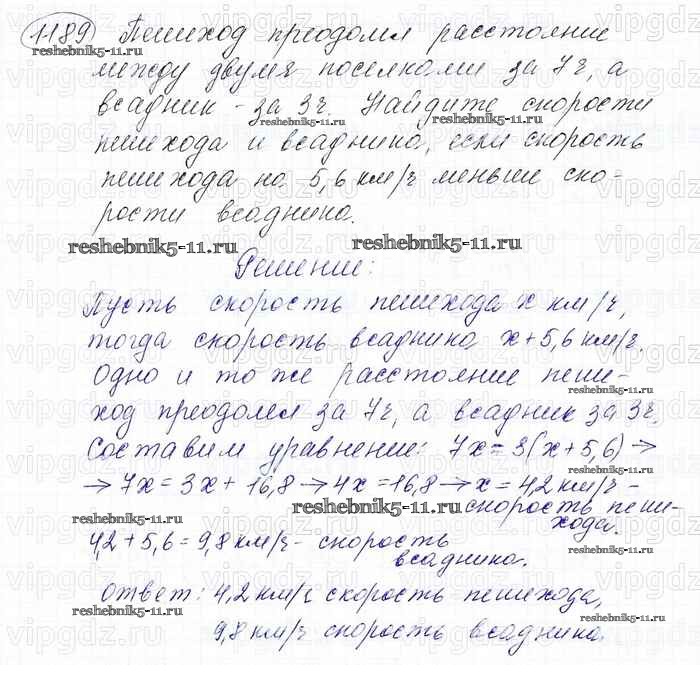 1189 Пешеход преодолел расстояние
reshebnik5-11.ru
между двумя поселками за 7ч, а
всадник - за 3ч. Найдите скорости
reshebnik5-11.ru reshebnik5-11.ru
пешехода и всадника, если скорость
пешехода на 5,6 км/ч меньше ско-
рости всадника.
reshebnik5-11.ru reshebnik5-11.ru
Решение:
Пусть скорость пешехода x км/ч,
тогда скорость всадника x+5,6 км/ч.
Одно и то же расстояние пеше-
ход преодолел за 7ч, а всадник за 3ч.
Составим уравнение: 7x=3(x+5,6) →
reshebnik5-11.ru
→ 7x = 3x + 16,8 → 4x = 16,8 → x = 4,2 км/ч -
скорость пеше-
reshebnik5-11.ru reshebnik5-11.ru
хода.
4,2 + 5,6 = 9,8 км/ч - скорость
всадника.
Ответ: 4,2 км/ч скорость пешехода,
reshebnik5-11.ru reshebnik5-11.ru
9,8 км/ч скорость всадника.
vipgdz.ru